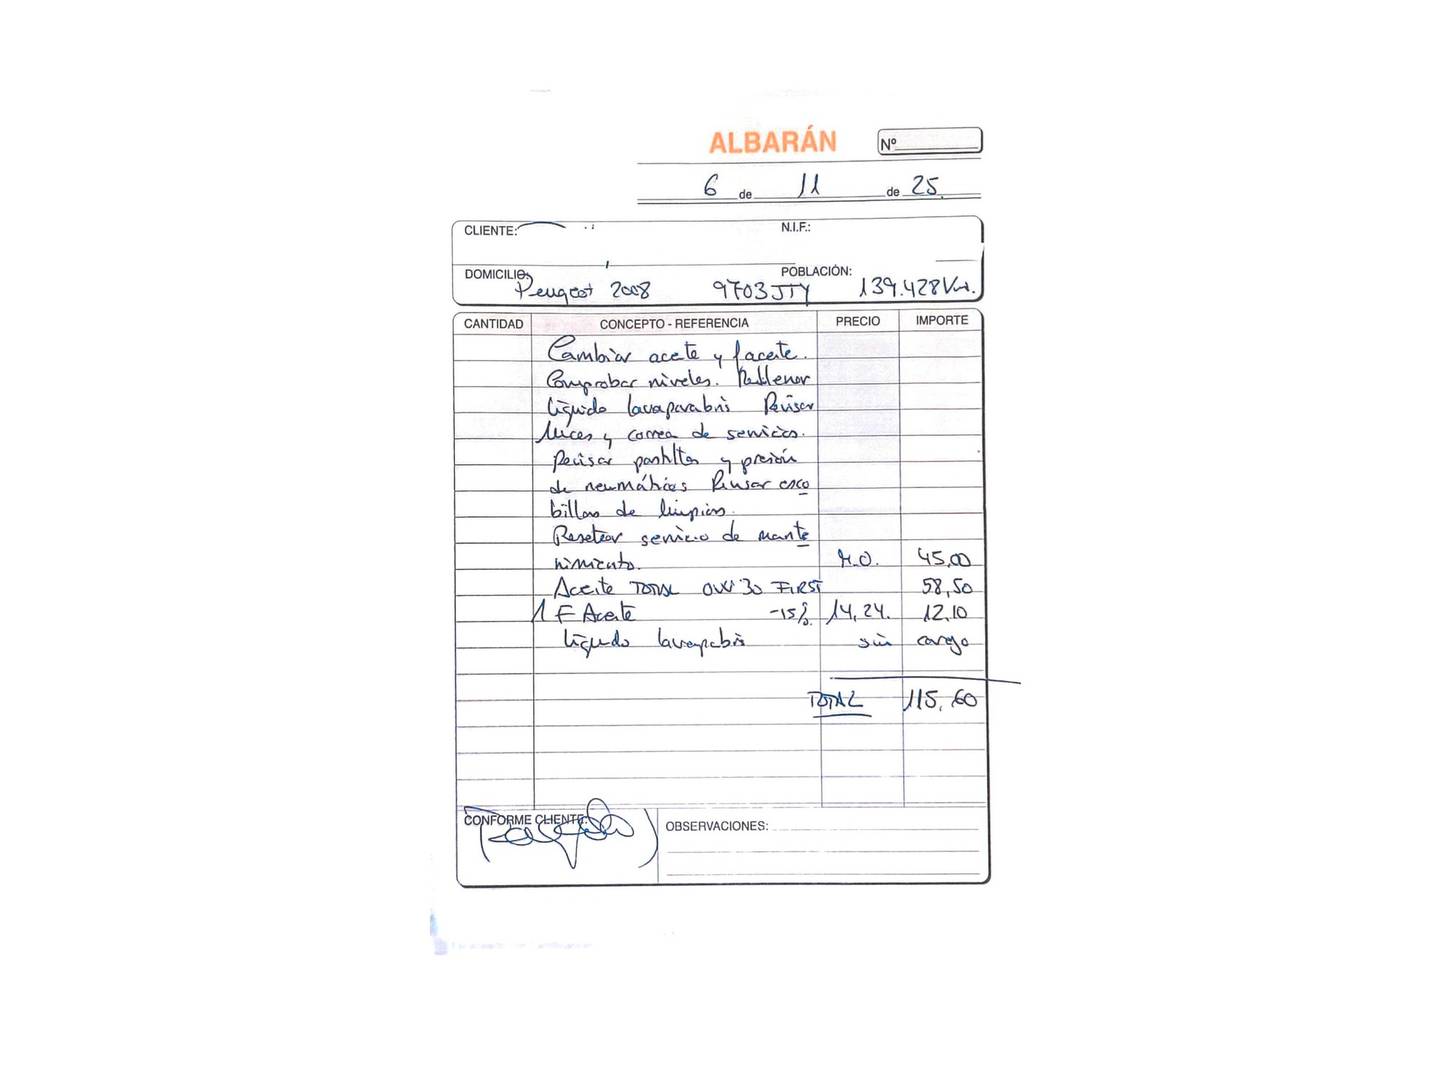 ALBARÁN
Nº
6 de 11 de 25.
CLIENTE:
N.I.F.:
DOMICILIO:
POBLACIÓN:
Peugeot 2008 9703JTY 139.428 Km.
CANTIDAD CONCEPTO - REFERENCIA PRECIO IMPORTE
Cambiar aceite y f aceite.
Comprobar niveles. Rellenar
líquido lavaparabris Revisar
luces y correa de servicios.
Revisar pastillas y presión
de neumáticos Revisar esco
billas de limpias.
Resetear servicio de mante
nimiento. M.O. 45,00
Aceite TOTAL 0W30 FIRST 58,50
1 F Aceite -15%. 14,24. 12,10
líquido lavaparabris sin cargo
TOTAL 115,60
CONFORME CLIENTE:
OBSERVACIONES: